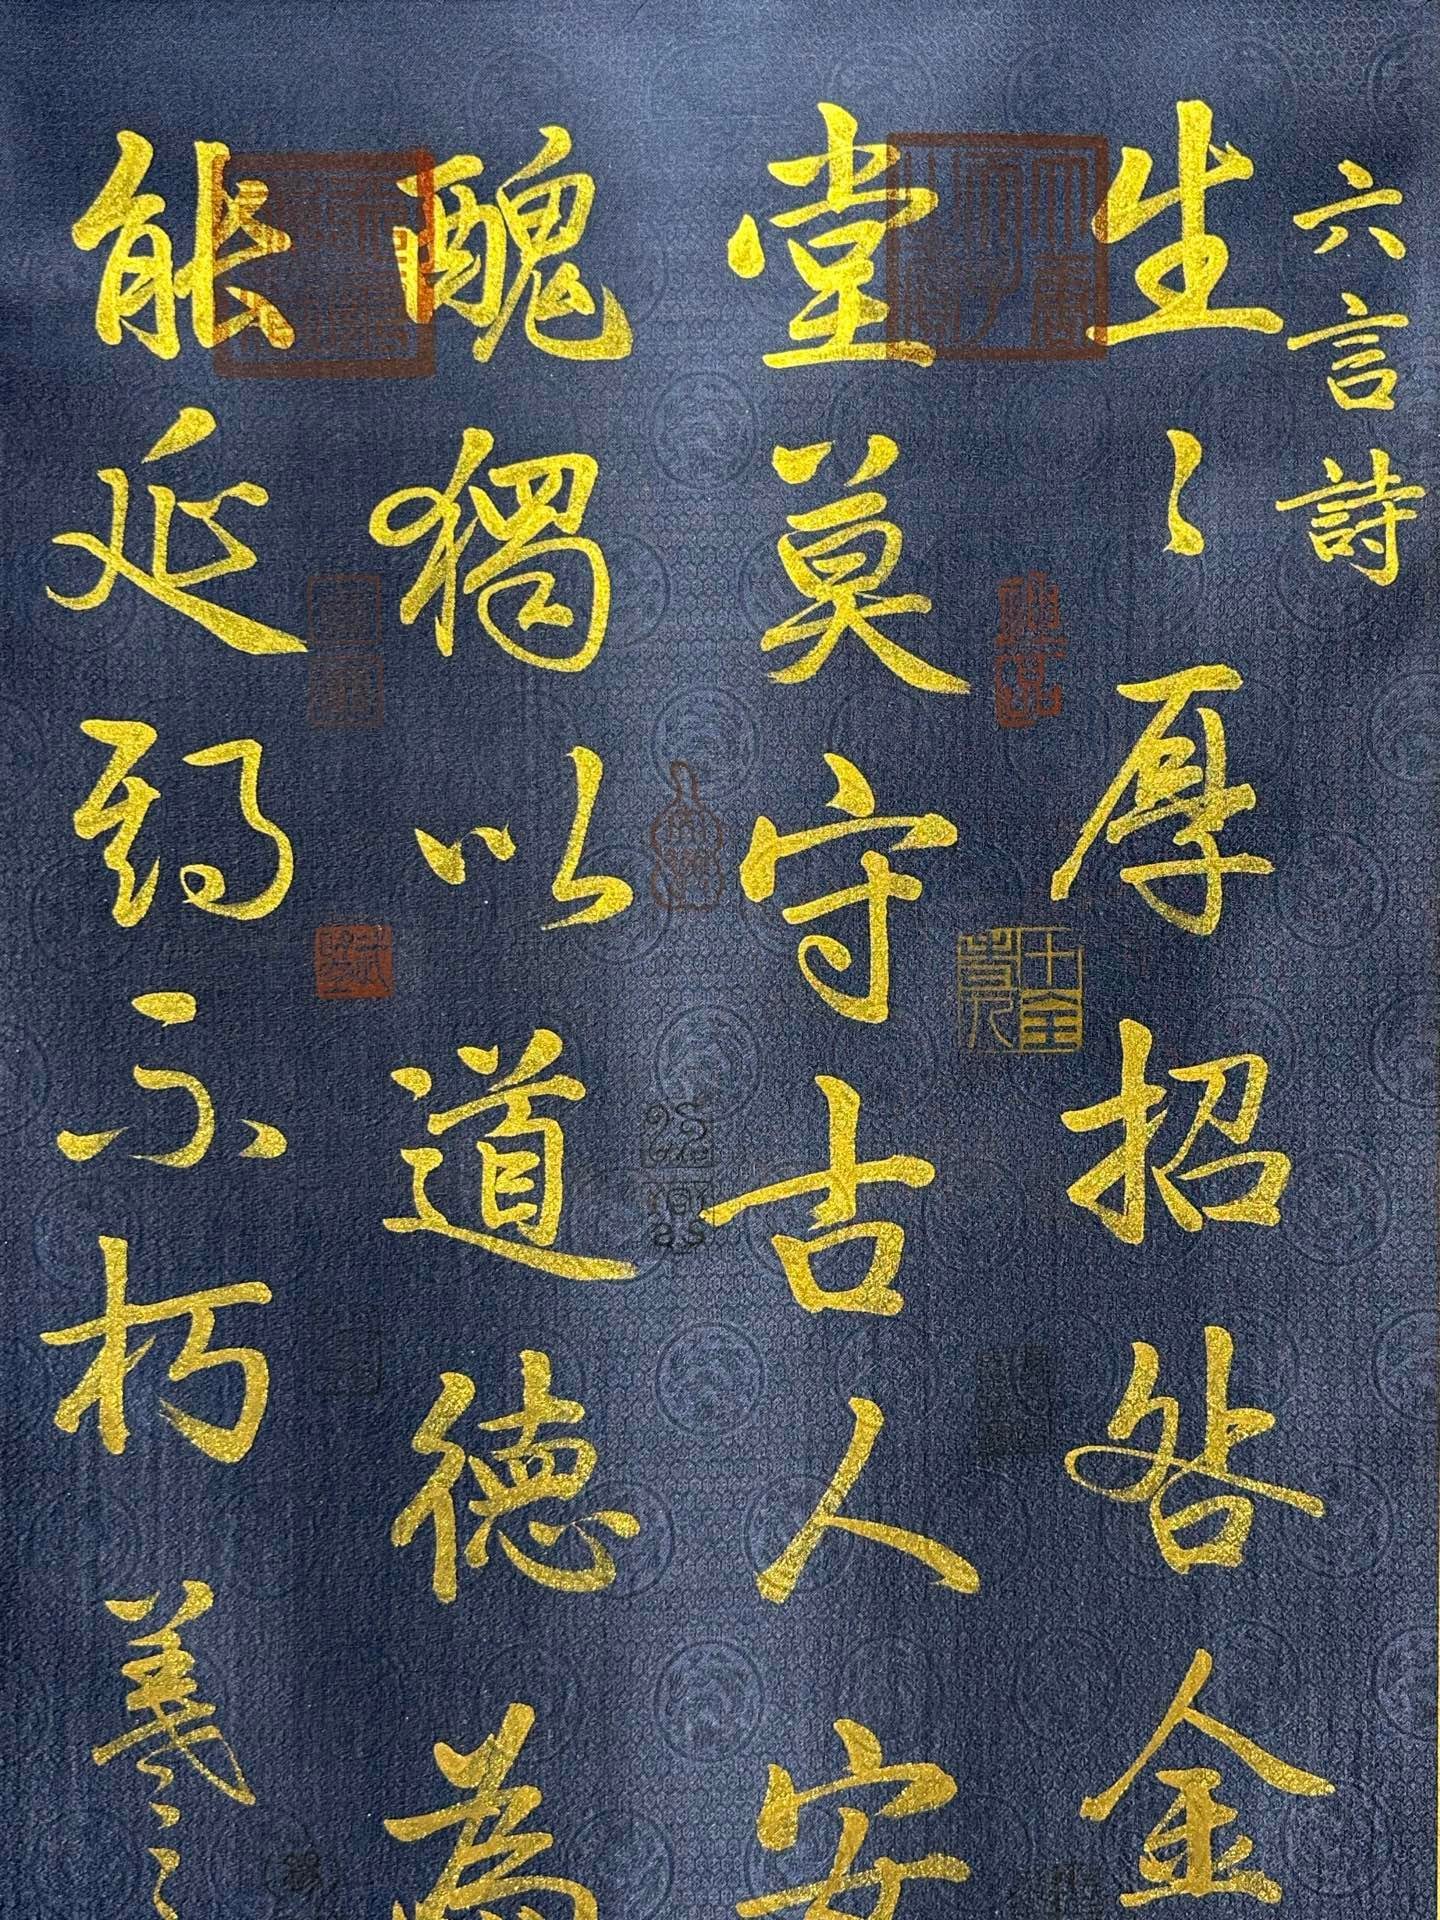 六言詩
生〻厚招咎金
堂莫守古人安
醜獨以道德為
能延期不朽羲之